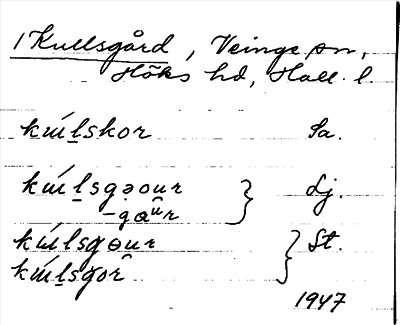 1 Kullsgård, Veinge sn,
Höks hd, Hall. l.
kúḷskor Sa.
kúḷsgəour } Lj.
-gɑu̯r
kúlsgɵur } St.
kúḷsgor̂
1947